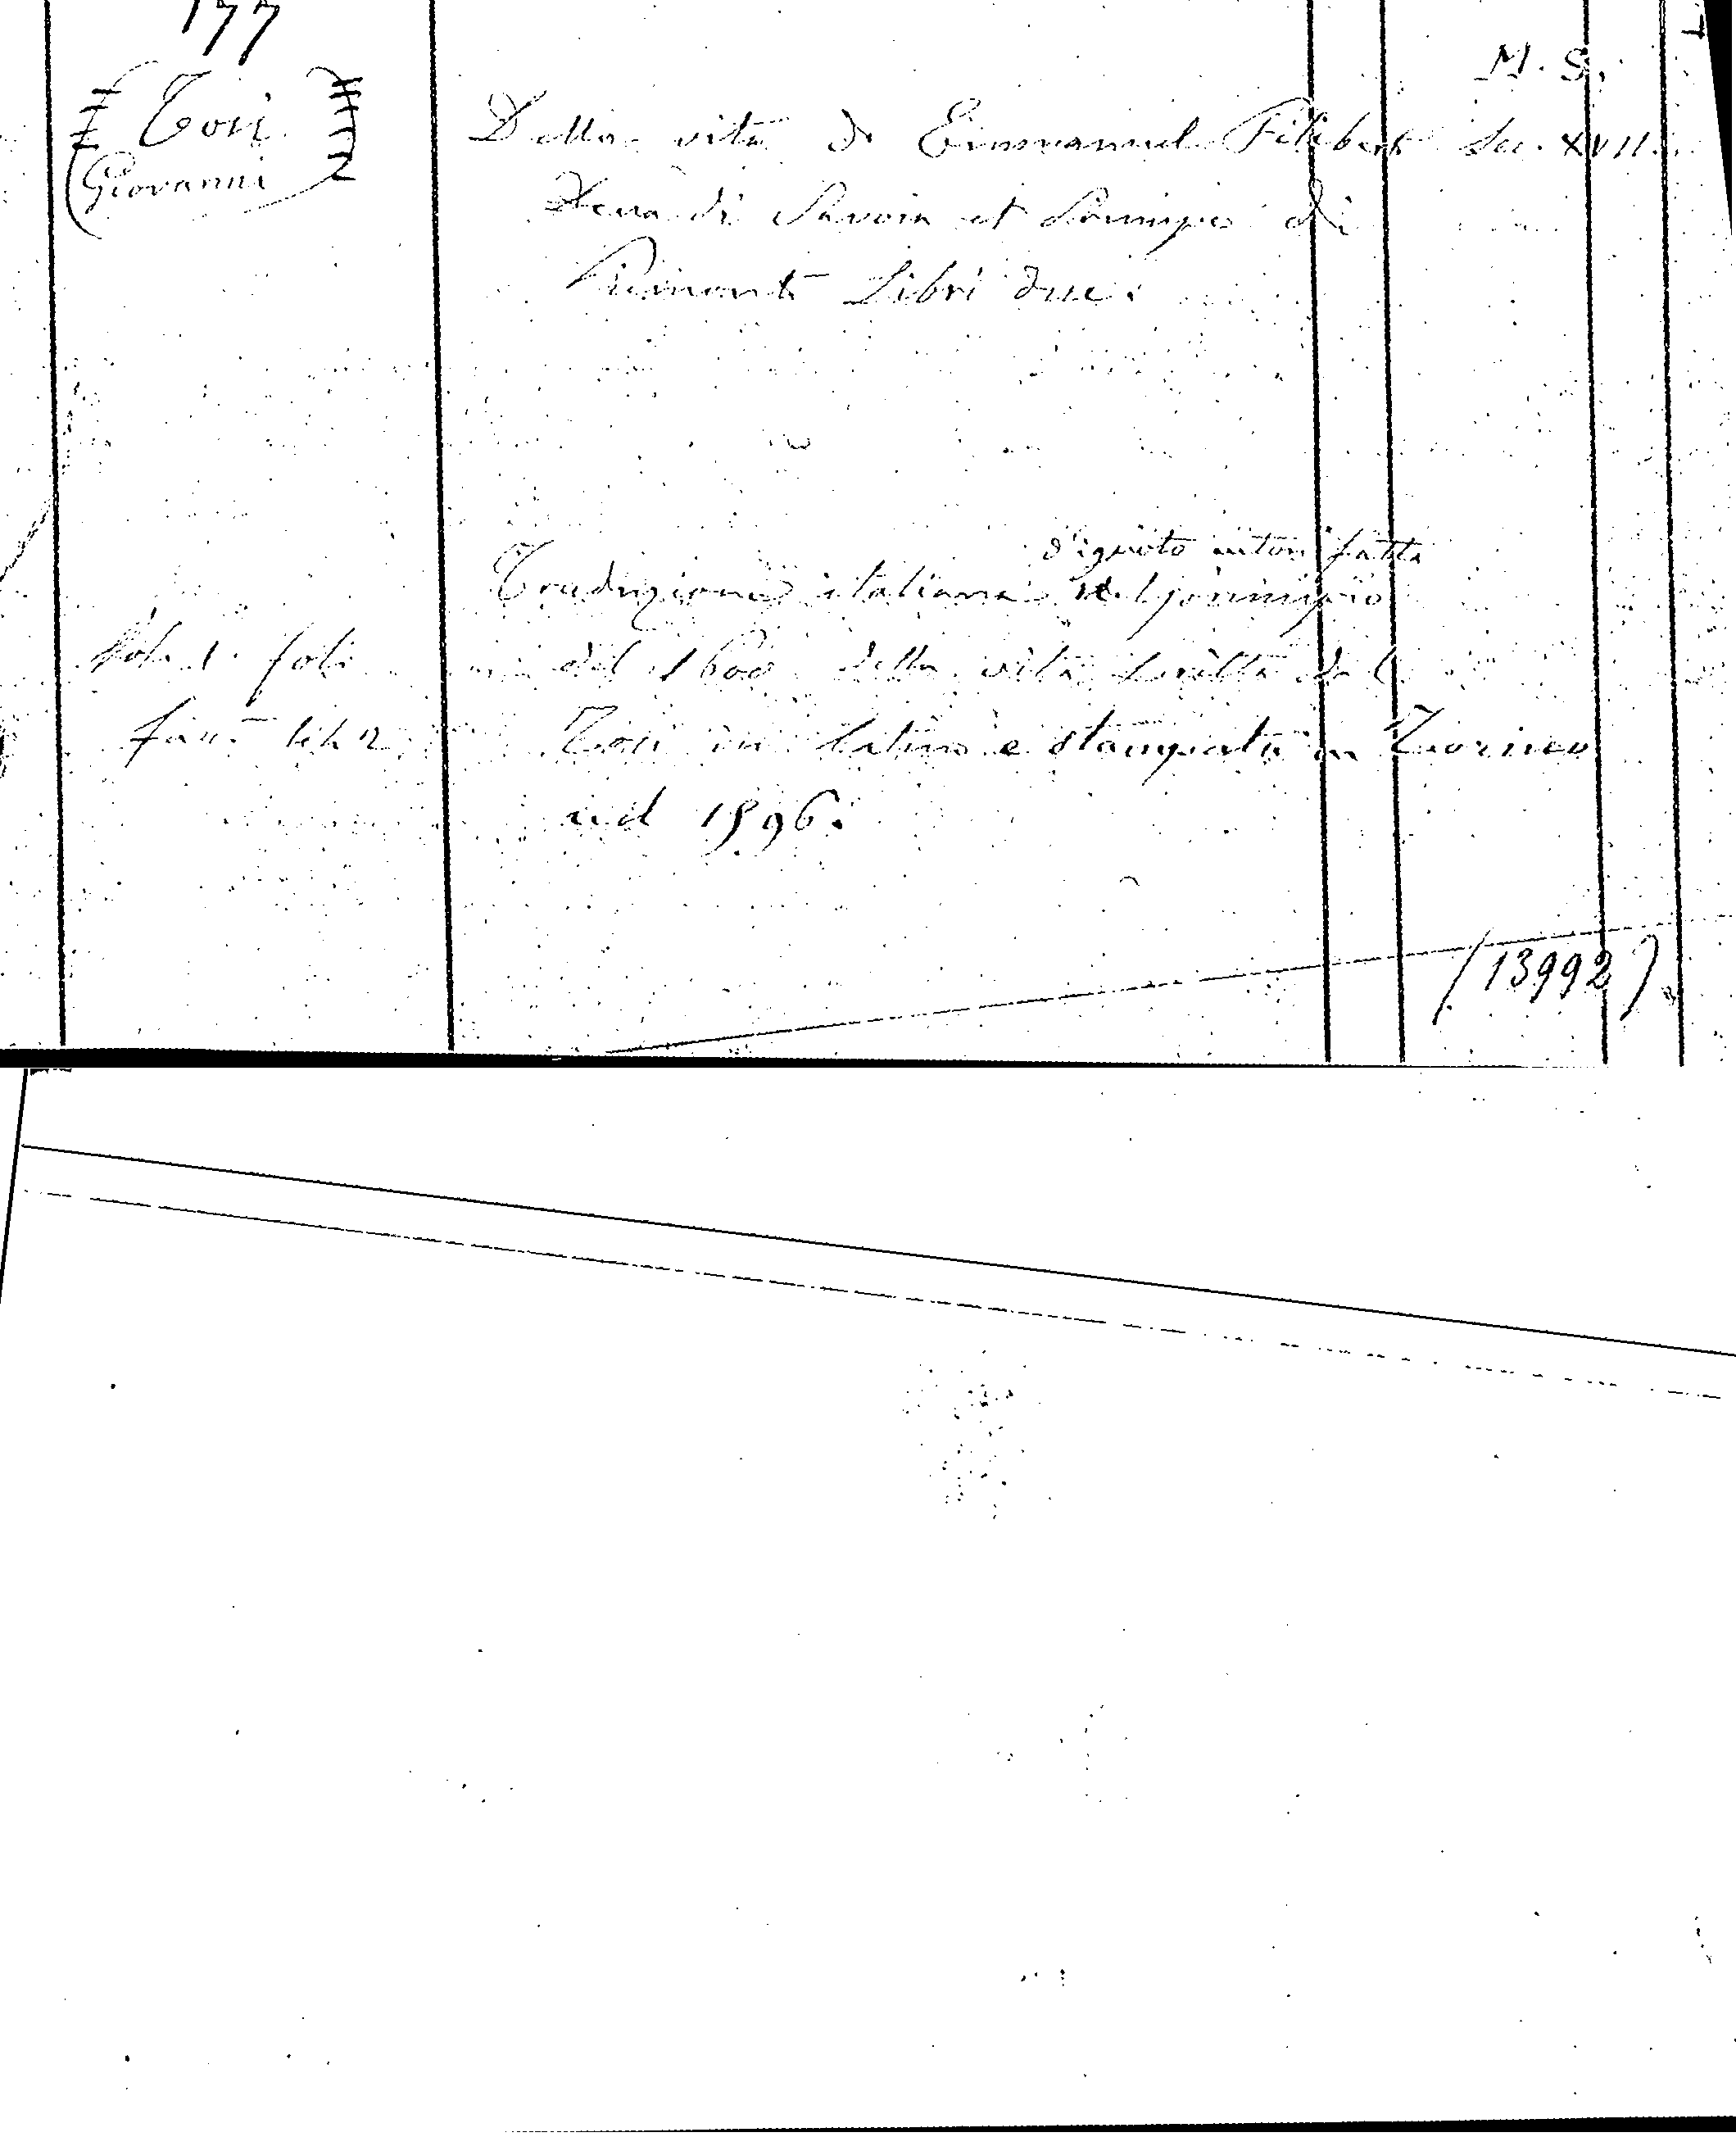 177
M. S.
(Tosi
Giovanni)
Della vita di Emmanuel Filiberto Sec. XVII.
Duca di Savoia et Principe di
Piemonte Libri due.
d'ignoto autore fatta
Traduzione italiana nel principio
Vol. 1. fol.
del 1600 della vita scritta dal
Tosi in latino e stampata in Torino
nel 1596.
(13992)